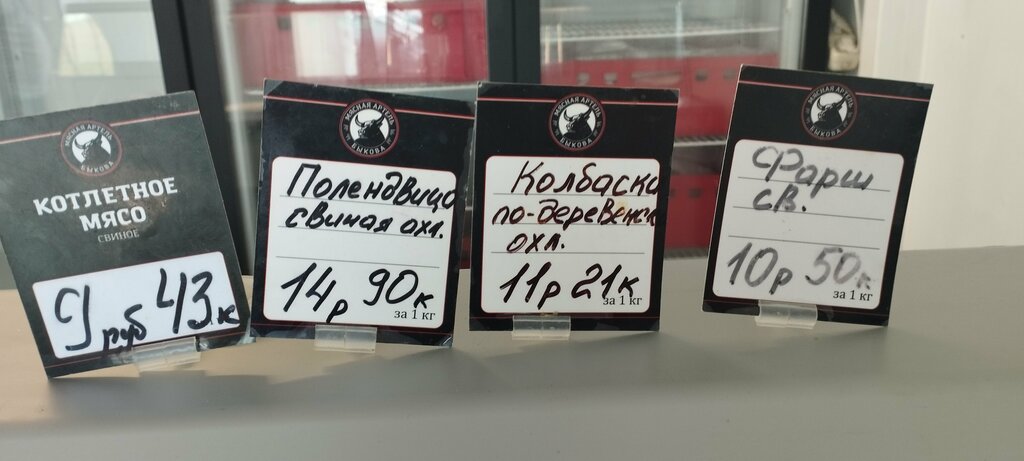 МЯСНАЯ АРТЕЛЬ
БЫКОВА
КОТЛЕТНОЕ
МЯСО
СВИНОЕ
9 руб 43 к
МЯСНАЯ АРТЕЛЬ
БЫКОВА
Полендвица
свиная охл.
14р 90к
за 1 кг
МЯСНАЯ АРТЕЛЬ
БЫКОВА
Колбаски
по-деревенск
охл.
11р 21к
за 1 кг
МЯСНАЯ АРТЕЛЬ
БЫКОВА
Фарш
св.
10р 50к
за 1 кг